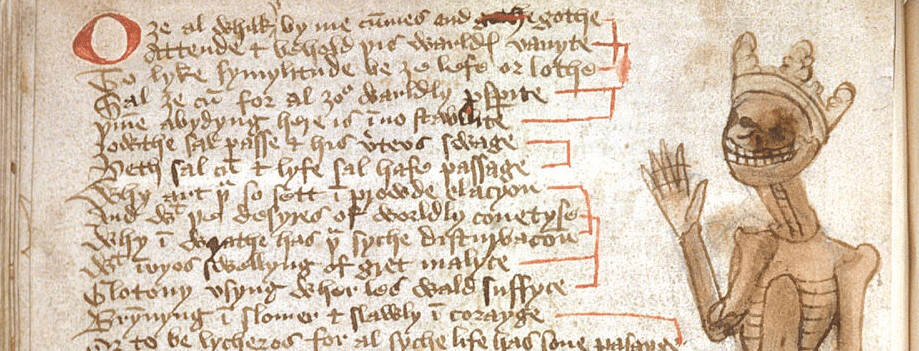 O ze al whilk by me cūmes and gothe
Attende & behold þis warldly vanyte
To lyke symylitude be ze lefe or lothe
Sal ze cū for al zoʳ warldly psperite
abydyng here is ī no
Zowthe sal passe & his swage
Deth sal cū & lyfe sal hafe passage
Why art þͧ so sett ī prowde elacyon
And wͭ desyres of worldly couetyse
Why ī wrathe has þͧ syche disturbacōn
Wͭ swellyng of gret malyce
Glotony vsyng wher les wald suffyce
Brynyng ī slomer & slawly ī corayge
Or to be lycheros for al syche life has sone passage